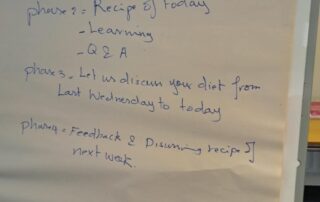 phase2 = Recipe of today
- Learning
- Q & A
phase3 = Let us discuss your diet from
Last Wednesday to today
phase4 = Feedback & Discussing recipe of
next week.